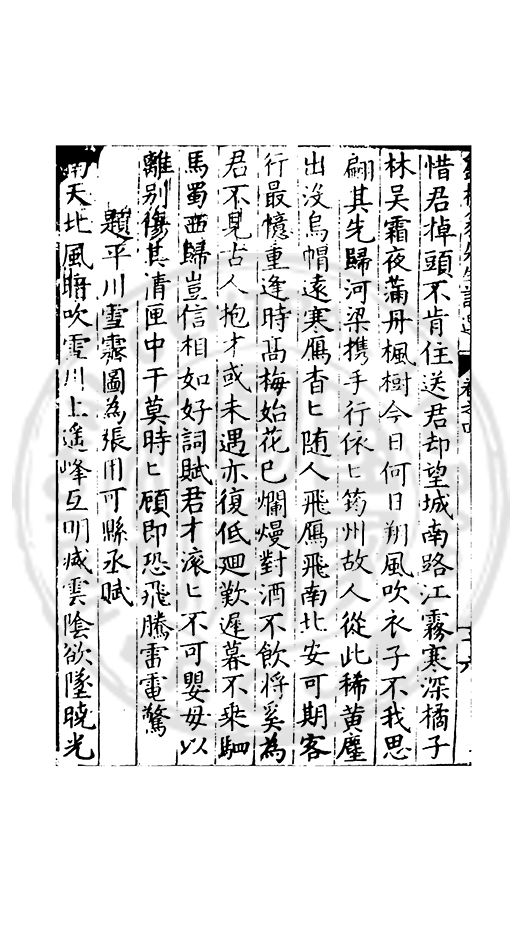 惜君掉頭不肯住送君却望城南路江霧寒深橘子
林吴霜夜滿丹楓樹今日何日朔風吹衣子不我思
翩其先歸河梁携手行依匕筠州故人從此稀黄塵
出没烏帽遠寒鴈杳匕随人飛鴈飛南北安可期客
行最憶重逢時髙梅始花已爛熳對酒不飲将奚為
君不見古人抱才或未遇亦復低廻歎遲暮不乗駟
馬蜀西歸豈信相如好詞賦君才滚匕不可嬰毋以
離别傷其清匣中干莫時匕顧即恐飛騰雷電驚
題平川雪霽圖為張用可縣丞賦
天地風晦吹雪川上遥峰互明滅雲陰欲墜曉光